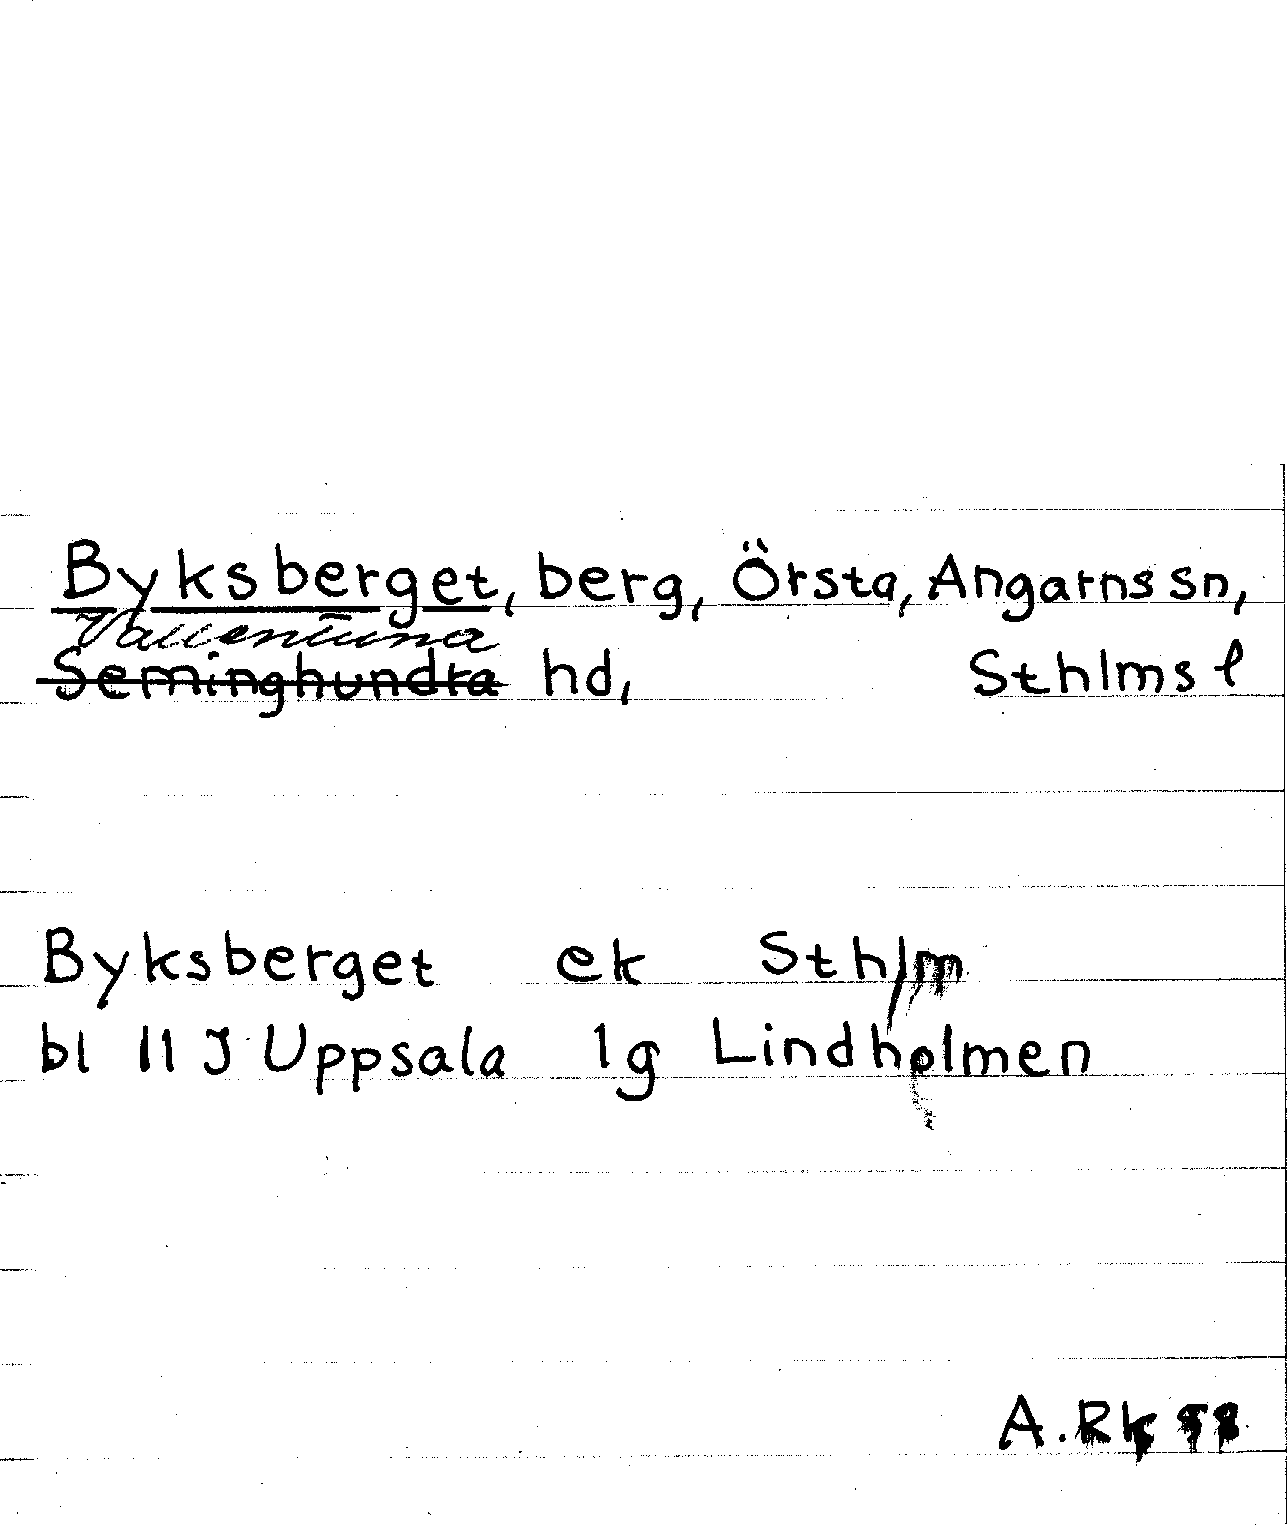 Byksberget, berg, Örsta, Angarns sn,
Vallentuna
Seminghundra hd, Sthlms l
Byksberget ek Sthlm
bl 11 J Uppsala lg Lindholmen
A. Rk